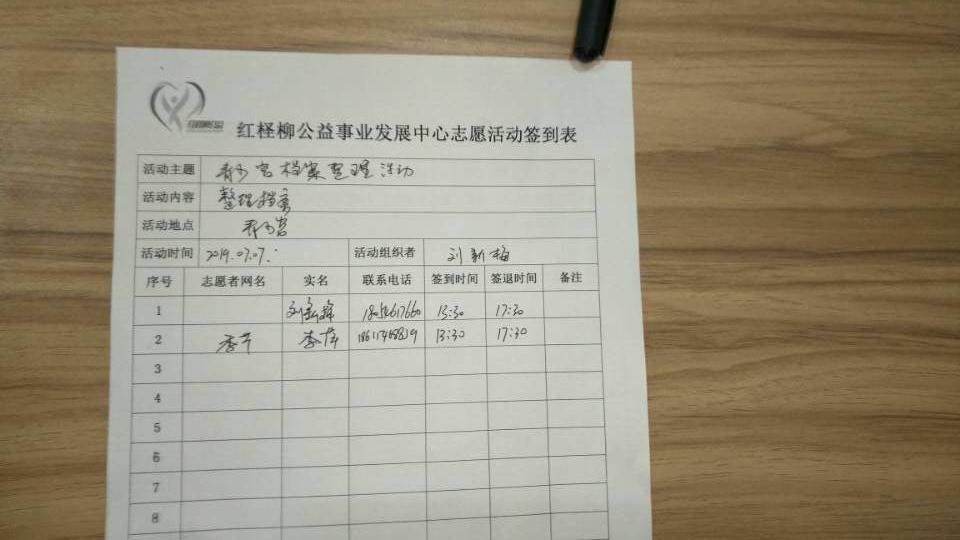 红柽柳公益事业发展中心志愿活动签到表
活动主题 青少宫档案整理活动
活动内容 整理档案
活动地点 青少宫
活动时间 2019.07.07. 活动组织者 刘新梅
序号 志愿者网名 实名 联系电话 签到时间 签退时间 备注
1 13:30 17:30
2 季萍 李萍 13:30 17:30
3
4
5
6
7
8